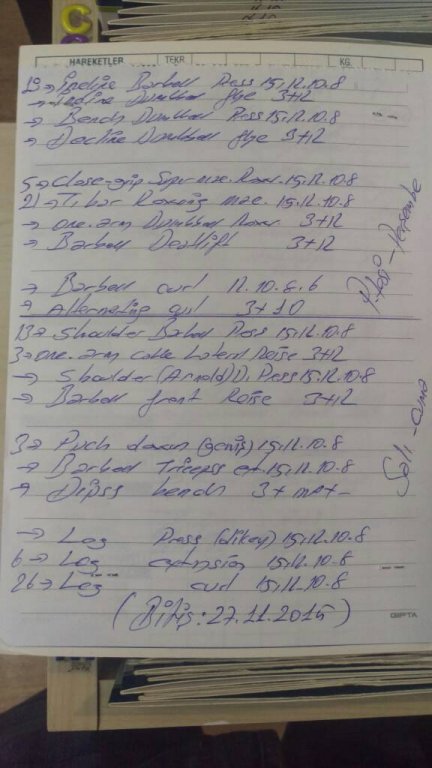 C
HAREKETLER TEKR. KG.
19→ İncline Barbell Press 15.12.10.8
→ İncline Dumbbell flye 3+12
→ Bench Dumbbell Press 15.12.10.8
→ Decline Dumbbell flye 3+12
5→ Close-grip Super mac. Row 15.12.10.8
21→ T. bar Rowing mac. 15.12.10.8
→ one. arm Dumbbell Row 3+12
→ Barbell Deatlift 3+12
→ Barbell curl 12.10.8.6
→ Alterneting curl 3+10
Pts - Perşembe
13→ Shoulder Barbell Press 15.12.10.8
3→ one. arm cable Lateral Raise 3+12
→ Shoulder (Arnold) D. Press 15.12.10.8
→ Barbell front Raise 3+12
3→ Puch down (geniş) 15.12.10.8
→ Barbell Tricepss ex. 15.12.10.8
→ Dipss bench 3+max-
Salı - Cuma
→ Leg Press (dikey) 15.12.10.8
6→ Leg extension 15.12.10.8
26→ Leg curl 15.12.10.8
(Bitiş: 27.11.2015)
GIPTA